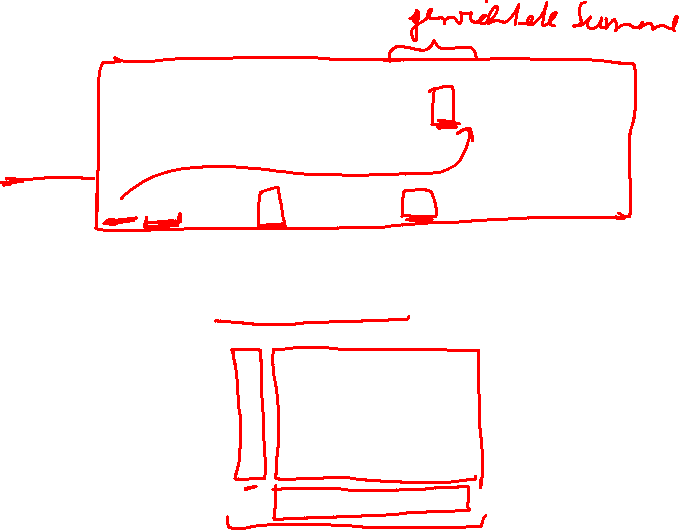 gewichtete Summe